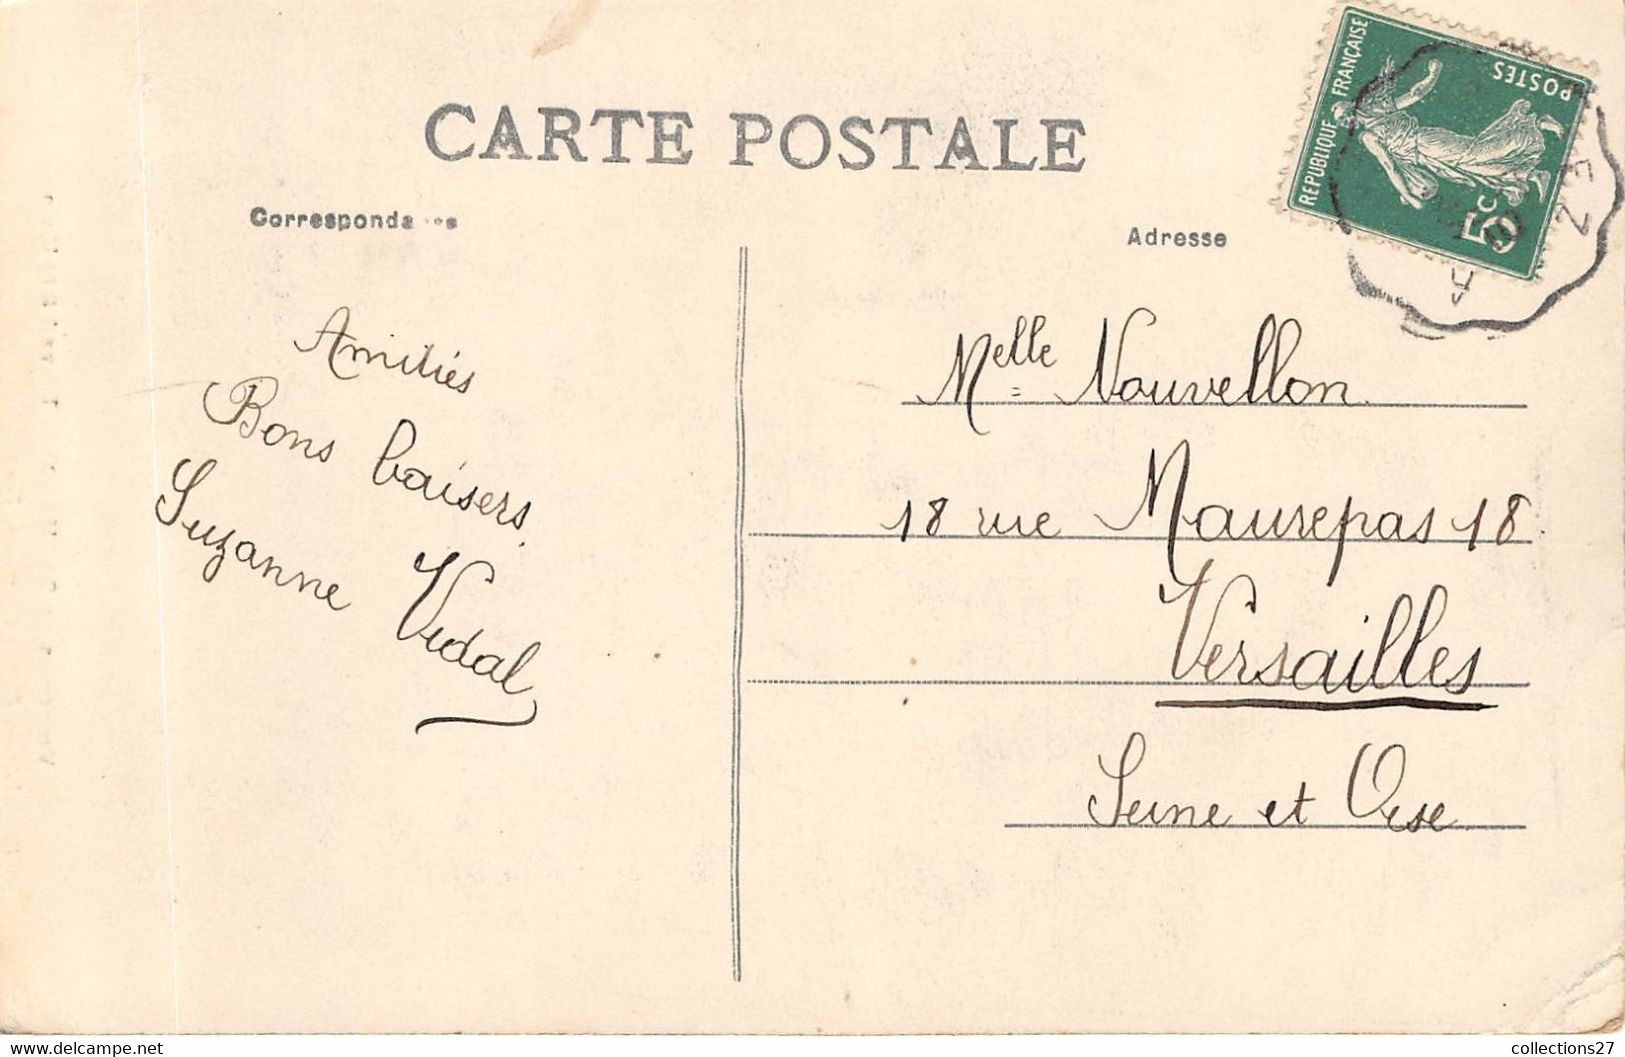 CARTE POSTALE
Correspondance
Adresse
RÉPUBLIQUE FRANÇAISE
POSTES
5c
Amitiés
Bons baisers
Suzanne Vidal
Melle Nouvellon
18 rue Maurepas 18
Versailles
Seine et Oise
collections27